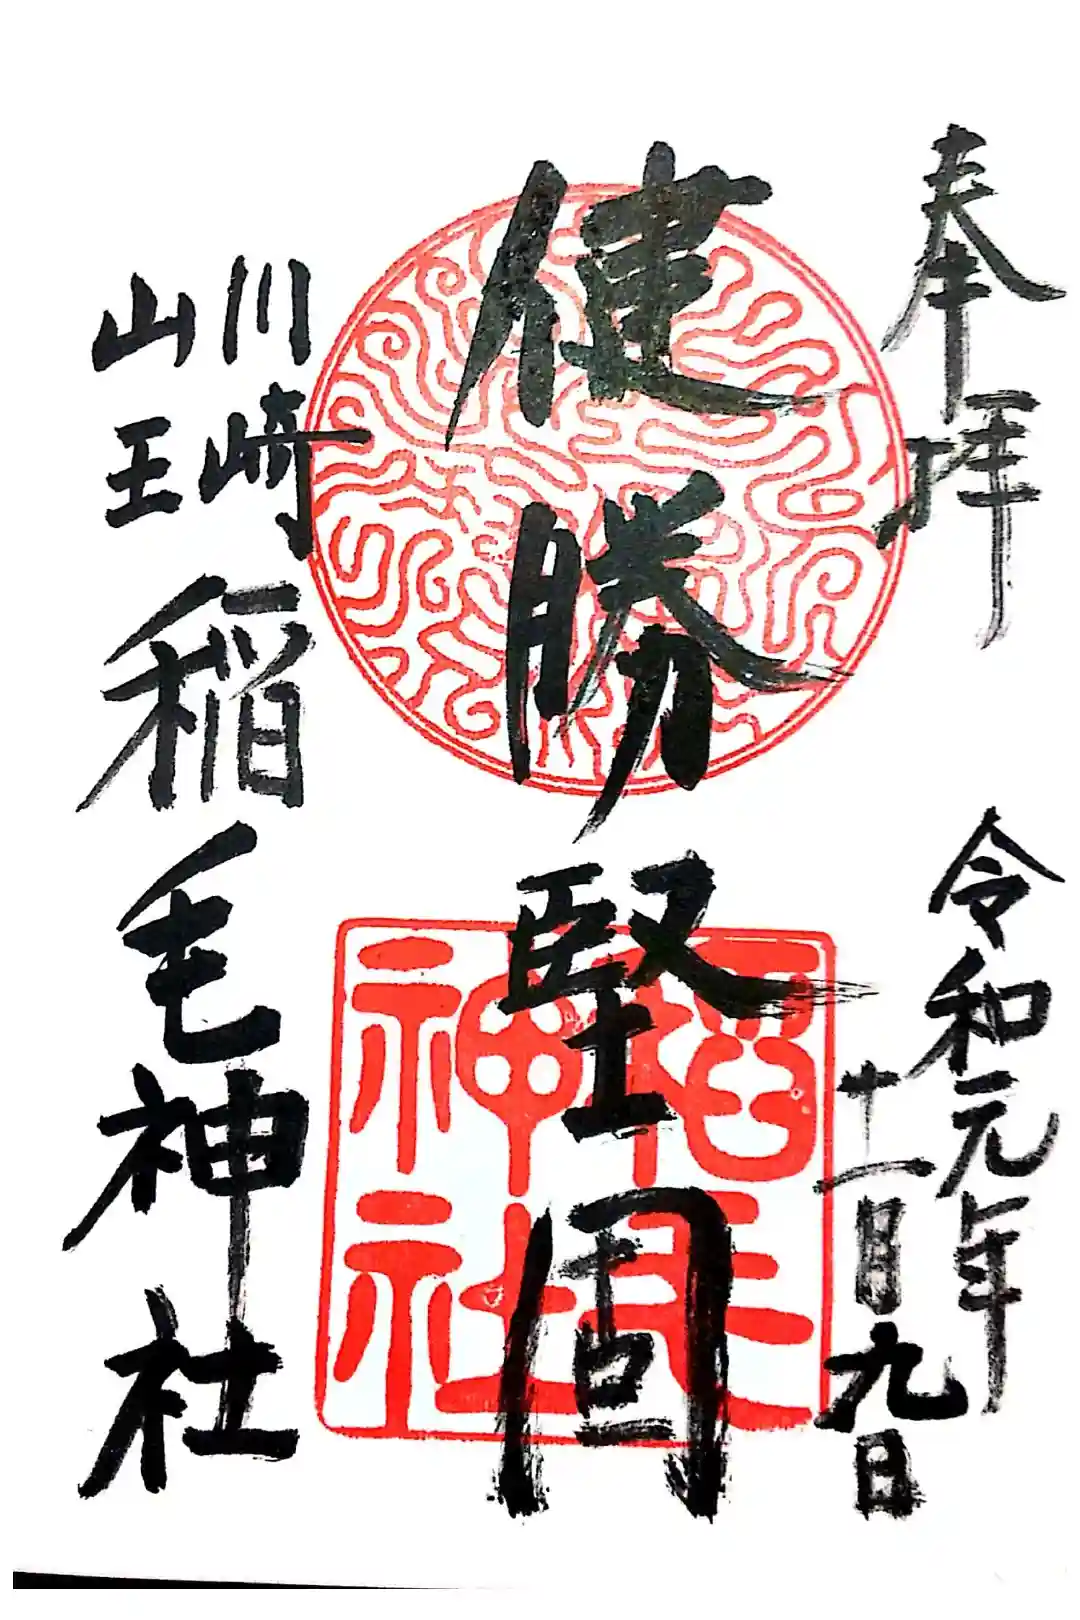 奉拝
令和元年
十一月九日
健勝堅固
稲毛神社
川崎
山王
稲毛神社